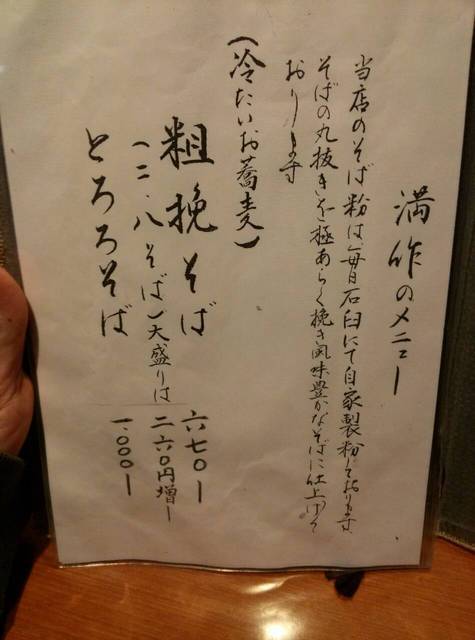 満作のメニュー
当店のそば粉は毎日石臼にて自家製粉しております、
そばの丸抜きを極あらく挽き風味豊かなそばに仕上げて
おります
(冷たいお蕎麦)
粗挽そば 六七〇ー
(二・八そば)大盛りは 二六〇円増ー
とろろそば 一、〇〇〇ー